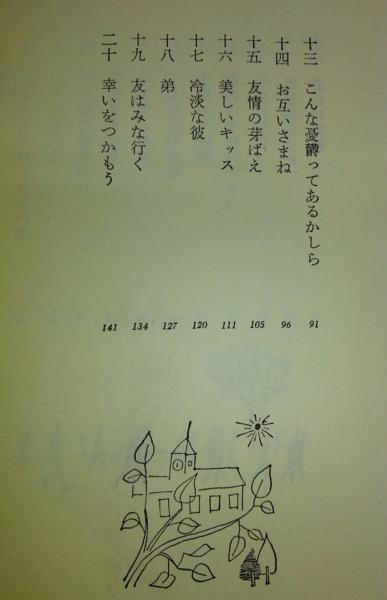 十三　こんな憂欝ってあるかしら　91
十四　お互いさまね　96
十五　友情の芽ばえ　105
十六　美しいキッス　111
十七　冷淡な彼　120
十八　弟　127
十九　友はみな行く　134
二十　幸いをつかもう　141